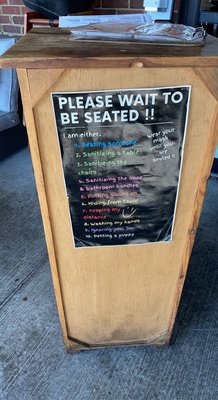 PLEASE WAIT TO
BE SEATED !!
I am either.
wear your
mask
until you
are
seated !!
1. Seating someone
2. Sanitizing a table
3. Sanitizing the
chairs
4. Sanitizing the door
& bathroom handles
5. Putting gloves on.
6. Hiding from Covid
7. Keeping my
distance
8. Washing my hands
9. Ignoring you,
10. Petting a puppy